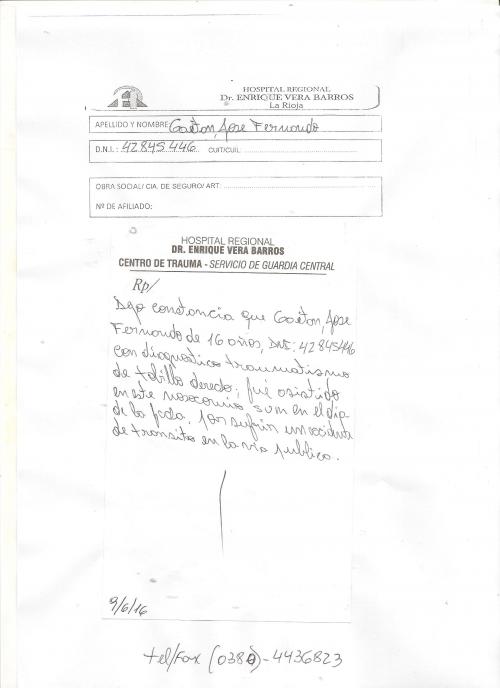 HOSPITAL REGIONAL
Dr. ENRIQUE VERA BARROS
La Rioja
APELLIDO Y NOMBRE: Gaetan, Jose Fernando
D.N.I.: 42845446 CUIT/CUIL:
OBRA SOCIAL/ CIA. DE SEGURO/ ART:
Nº DE AFILIADO:
HOSPITAL REGIONAL
DR. ENRIQUE VERA BARROS
CENTRO DE TRAUMA - SERVICIO DE GUARDIA CENTRAL
Rp/
Dejo constancia que Gaetan, Jose
Fernando de 16 años, DNI: 42845446
con diagnostico traumatismo
de tobillo derecho; fué asistido
en este nosocomio en el dia
de la fecha, por sufrir un accidente
de transito en la via publica.
9/6/16
tel/Fax (0380)-4436823